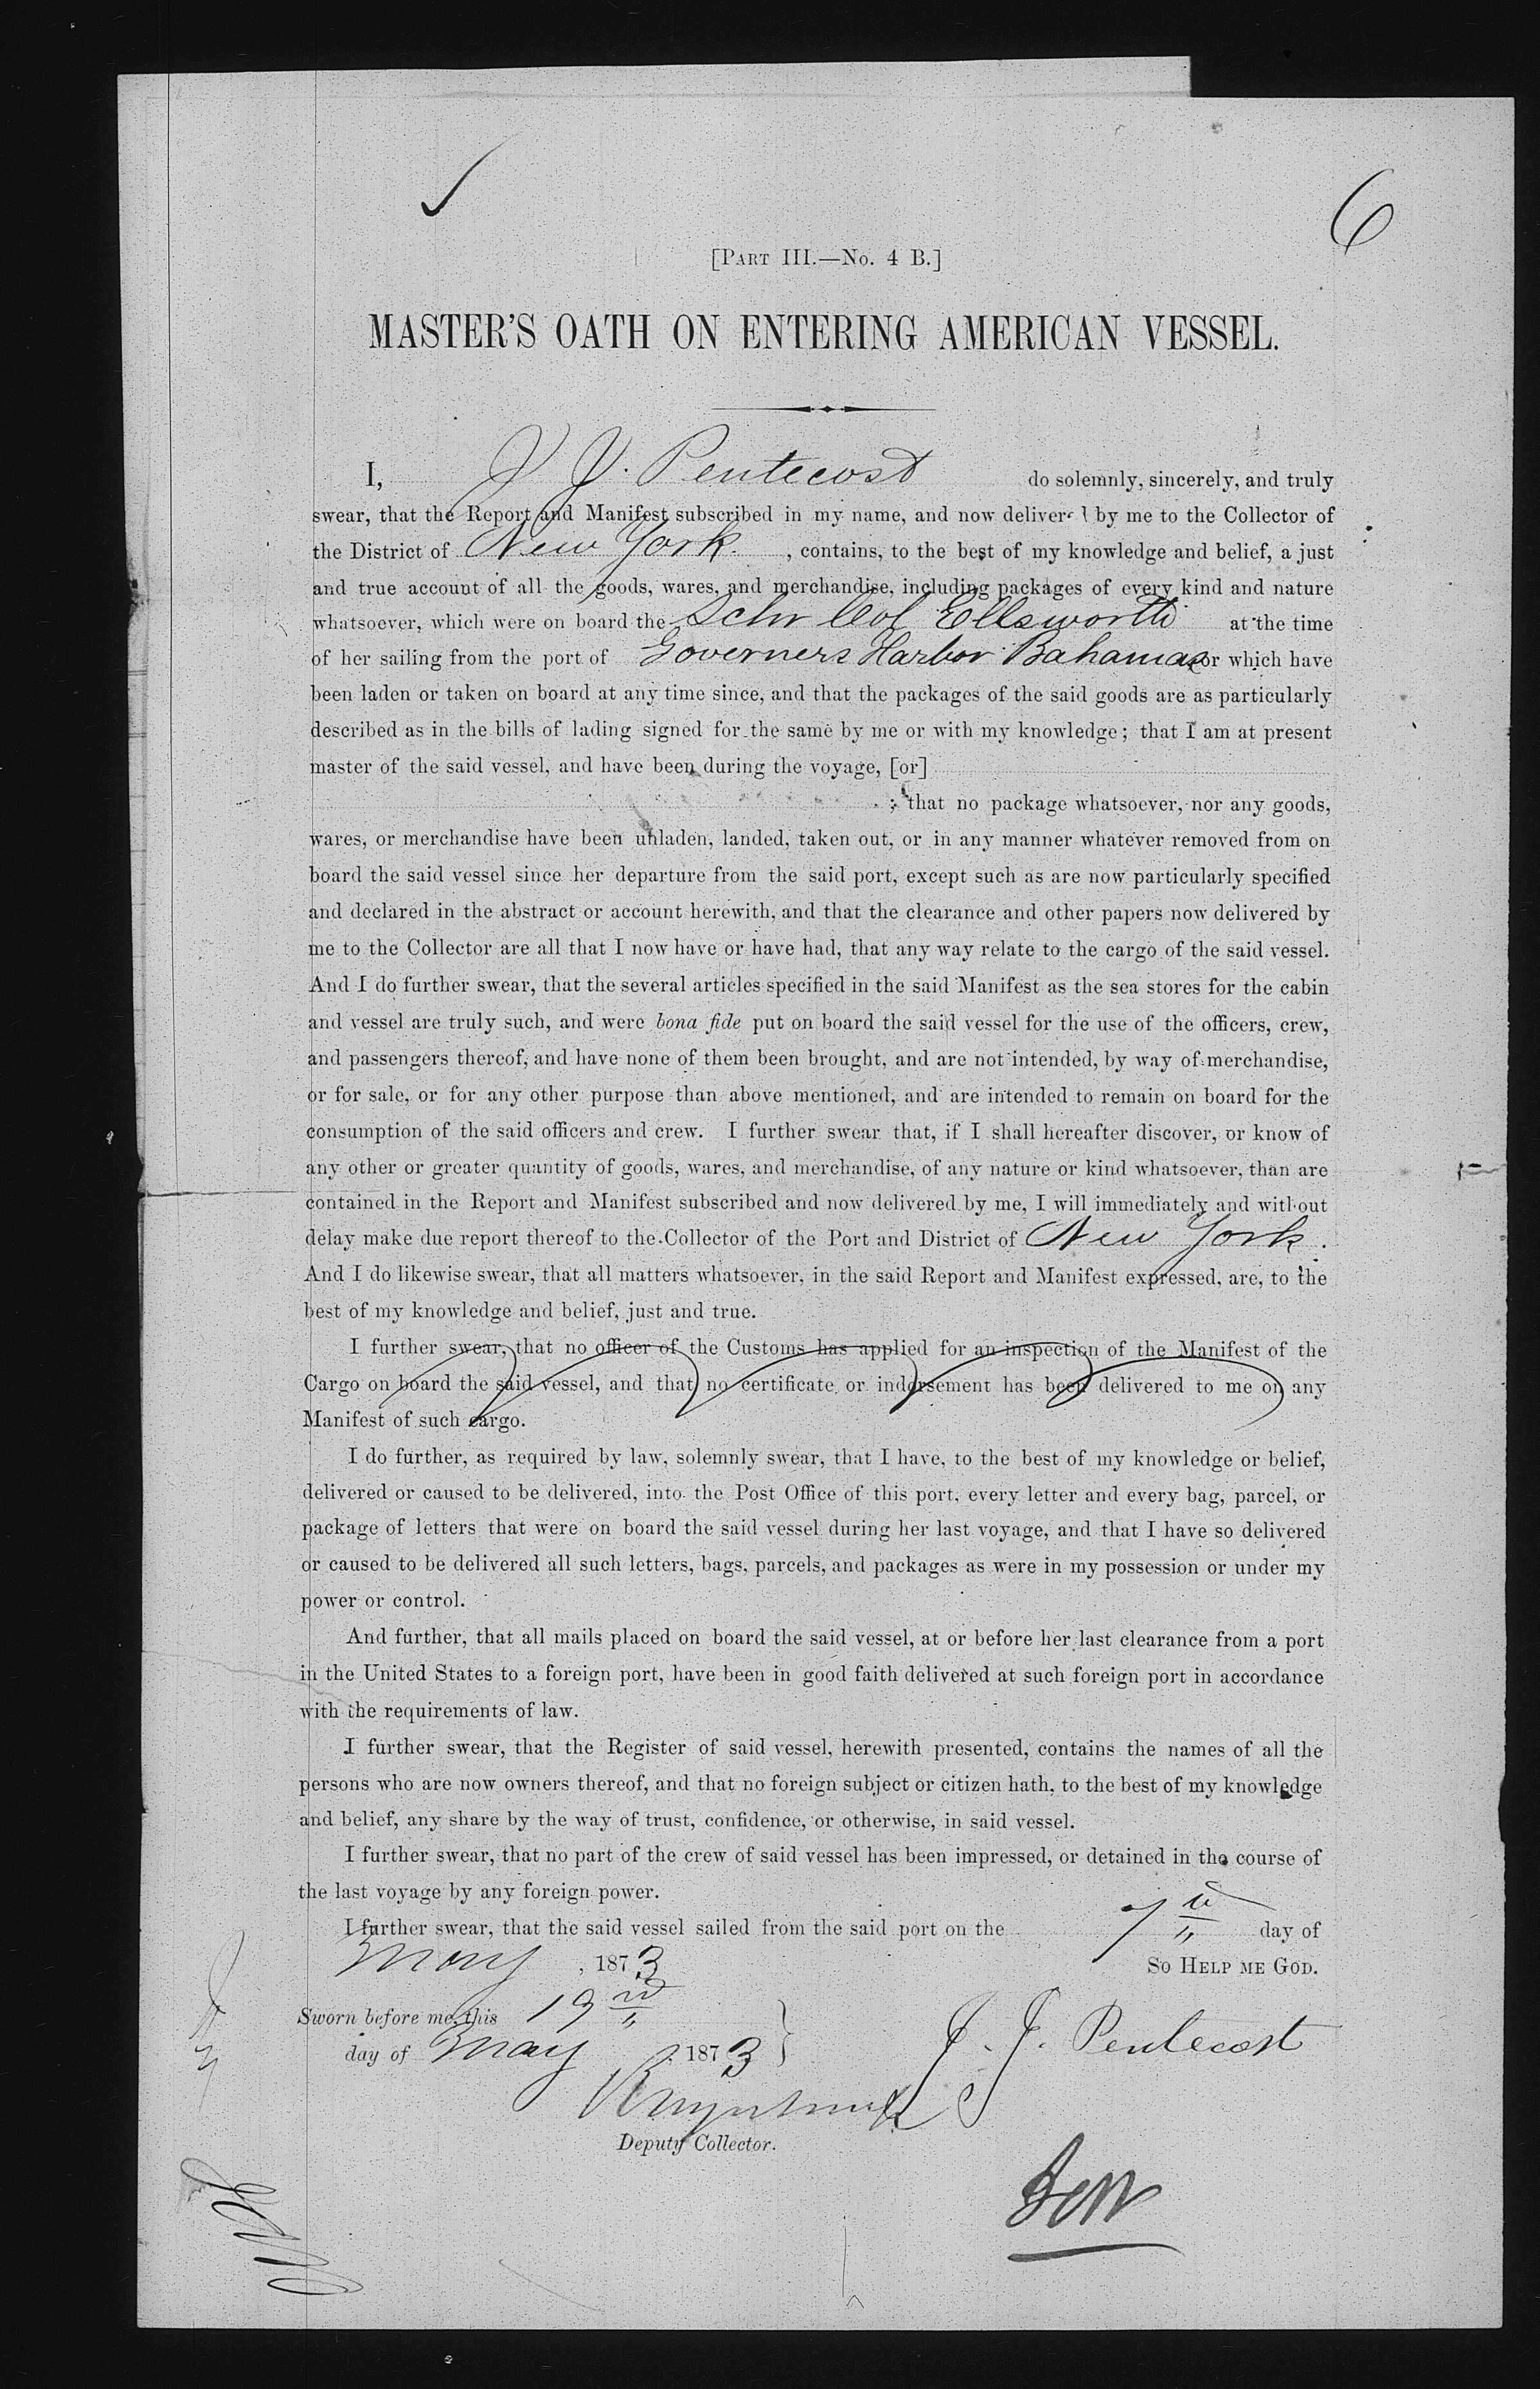 6
[PART III.—No. 4 B.]
MASTER'S OATH ON ENTERING AMERICAN VESSEL.
I, J J. Pentecost do solemnly, sincerely, and truly
swear, that the Report and Manifest subscribed in my name, and now delivered by me to the Collector of
the District of New York. , contains, to the best of my knowledge and belief, a just
and true account of all the goods, wares, and merchandise, including packages of every kind and nature
whatsoever, which were on board the Schr Col Ellsworth at the time
of her sailing from the port of Governers Harbor Bahamas or which have
been laden or taken on board at any time since, and that the packages of the said goods are as particularly
described as in the bills of lading signed for the same by me or with my knowledge; that I am at present
master of the said vessel, and have been during the voyage, [or]
; that no package whatsoever, nor any goods,
wares, or merchandise have been unladen, landed, taken out, or in any manner whatever removed from on
board the said vessel since her departure from the said port, except such as are now particularly specified
and declared in the abstract or account herewith, and that the clearance and other papers now delivered by
me to the Collector are all that I now have or have had, that any way relate to the cargo of the said vessel.
And I do further swear, that the several articles specified in the said Manifest as the sea stores for the cabin
and vessel are truly such, and were bona fide put on board the said vessel for the use of the officers, crew,
and passengers thereof, and have none of them been brought, and are not intended, by way of merchandise,
or for sale, or for any other purpose than above mentioned, and are intended to remain on board for the
consumption of the said officers and crew. I further swear that, if I shall hereafter discover, or know of
any other or greater quantity of goods, wares, and merchandise, of any nature or kind whatsoever, than are
contained in the Report and Manifest subscribed and now delivered by me, I will immediately and without
delay make due report thereof to the Collector of the Port and District of New York.
And I do likewise swear, that all matters whatsoever, in the said Report and Manifest expressed, are, to the
best of my knowledge and belief, just and true.
I further swear, that no officer of the Customs has applied for an inspection of the Manifest of the
Cargo on board the said vessel, and that no certificate or indorsement has been delivered to me on any
Manifest of such cargo.
I do further, as required by law, solemnly swear, that I have, to the best of my knowledge or belief,
delivered or caused to be delivered, into the Post Office of this port, every letter and every bag, parcel, or
package of letters that were on board the said vessel during her last voyage, and that I have so delivered
or caused to be delivered all such letters, bags, parcels, and packages as were in my possession or under my
power or control.
And further, that all mails placed on board the said vessel, at or before her last clearance from a port
in the United States to a foreign port, have been in good faith delivered at such foreign port in accordance
with the requirements of law.
I further swear, that the Register of said vessel, herewith presented, contains the names of all the
persons who are now owners thereof, and that no foreign subject or citizen hath, to the best of my knowledge
and belief, any share by the way of trust, confidence, or otherwise, in said vessel.
I further swear, that no part of the crew of said vessel has been impressed, or detained in the course of
the last voyage by any foreign power.
I further swear, that the said vessel sailed from the said port on the 7th day of
May , 1873
SO HELP ME GOD.
Sworn before me, this 19
day of May 1873
J. J. Pentecost
Deputy Collector.